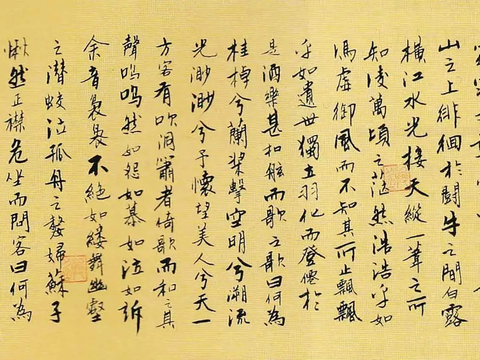 山之上徘徊於鬥牛之間白露
橫江水光接天縱一葦之所
如凌萬頃之茫然浩浩乎如
馮虛御風而不知其所止飄飄
乎如遺世獨立羽化而登僊於
是酒樂甚扣舷而歌之歌曰何為
桂棹兮蘭槳擊空明兮溯流
光渺渺兮予懷望美人兮天一
方客有吹洞簫者倚歌而和之其
聲嗚嗚然如怨如慕如泣如訴
余音裊裊不絕如縷舞幽壑
之潛蛟泣孤舟之嫠婦蘇子
愀然正襟危坐而問客曰何為